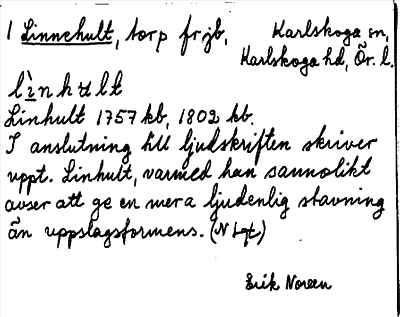 1 Linnehult, torp fr jb, Karlskoga sn,
Karlskoga hd, Ör. l.
lìnhult
Linhult 1757 kb, 1802 kb.
I anslutning till ljudskriften skriver
uppt. Linhult, varmed han sannolikt
avser att ge en mera ljudenlig stavning
än uppslagsformens. (N Lqt)
Erik Noreen